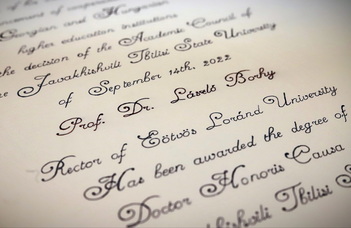 Georgian and Hungarian
higher education institutions
the decision of the Academic Council of
Javakhishvili Tbilisi State University
of September 14th, 2022
Prof. Dr. László Borhy
Rector of Eötvös Loránd University
Has been awarded the degree of
Doctor Honoris Causa
Tbilisi